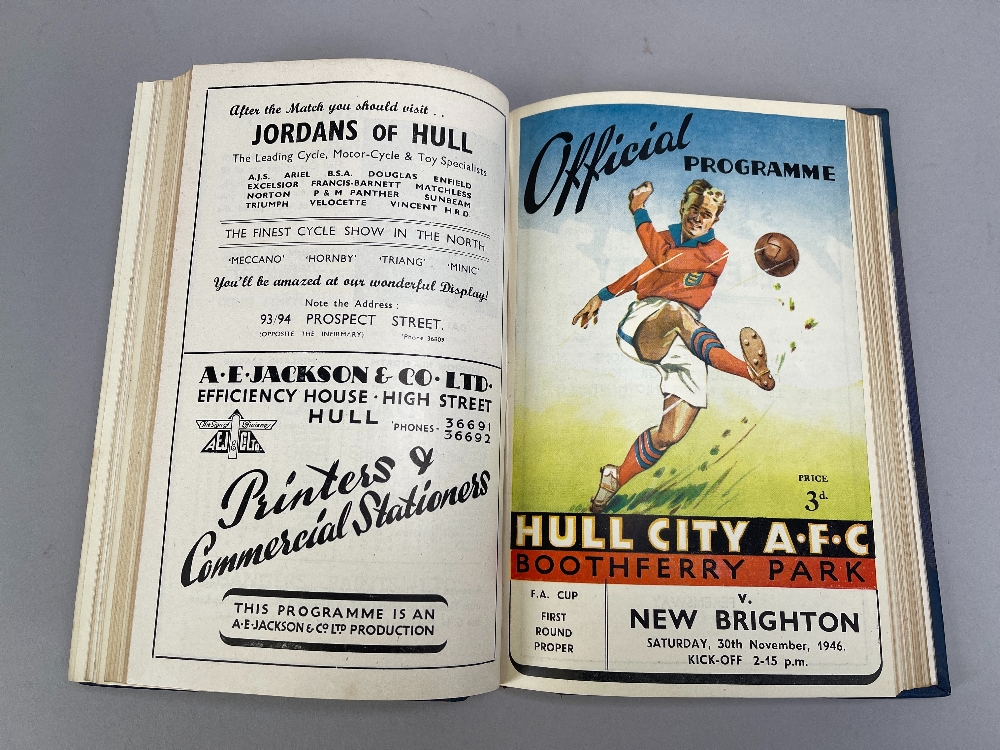 After the Match you should visit . .
JORDANS OF HULL
The Leading Cycle, Motor-Cycle & Toy Specialists
A.J.S. ARIEL B.S.A. DOUGLAS ENFIELD
EXCELSIOR FRANCIS-BARNETT MATCHLESS
NORTON P & M PANTHER SUNBEAM
TRIUMPH VELOCETTE VINCENT H.R.D.
THE FINEST CYCLE SHOW IN THE NORTH
'MECCANO' 'HORNBY' 'TRIANG' 'MINIC'
You'll be amazed at our wonderful Display!
Note the Address :
93/94 PROSPECT STREET.
(OPPOSITE THE INFIRMARY) 'Phone 36809
A·E·JACKSON & CO·LTD·
EFFICIENCY HOUSE · HIGH STREET
HULL 'PHONES- 36691
36692
The Sign of Efficiency
A.E.J. & Co. Ltd.
Printers &
Commercial Stationers
THIS PROGRAMME IS AN
A·E·JACKSON & Co LTD PRODUCTION
Official
PROGRAMME
PRICE
3d.
HULL CITY A·F·C
BOOTHFERRY PARK
F.A. CUP
FIRST
ROUND
PROPER
v.
NEW BRIGHTON
SATURDAY, 30th November, 1946.
KICK-OFF 2-15 p.m.